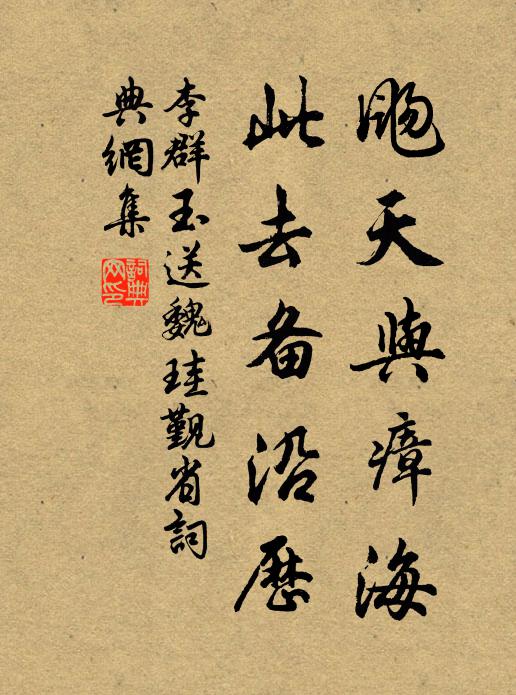 天與瘴海
此去备沿歷
李群玉送魏珪覲省詞
典網集
詞典
网印